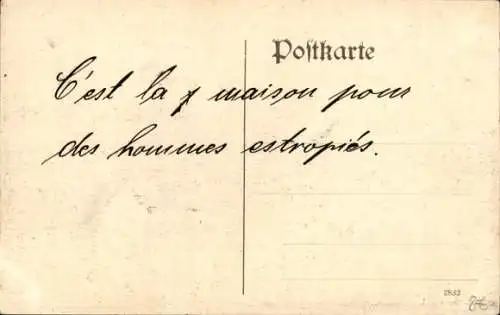 Postkarte
C'est la maison pour
des hommes estropiés.
2832